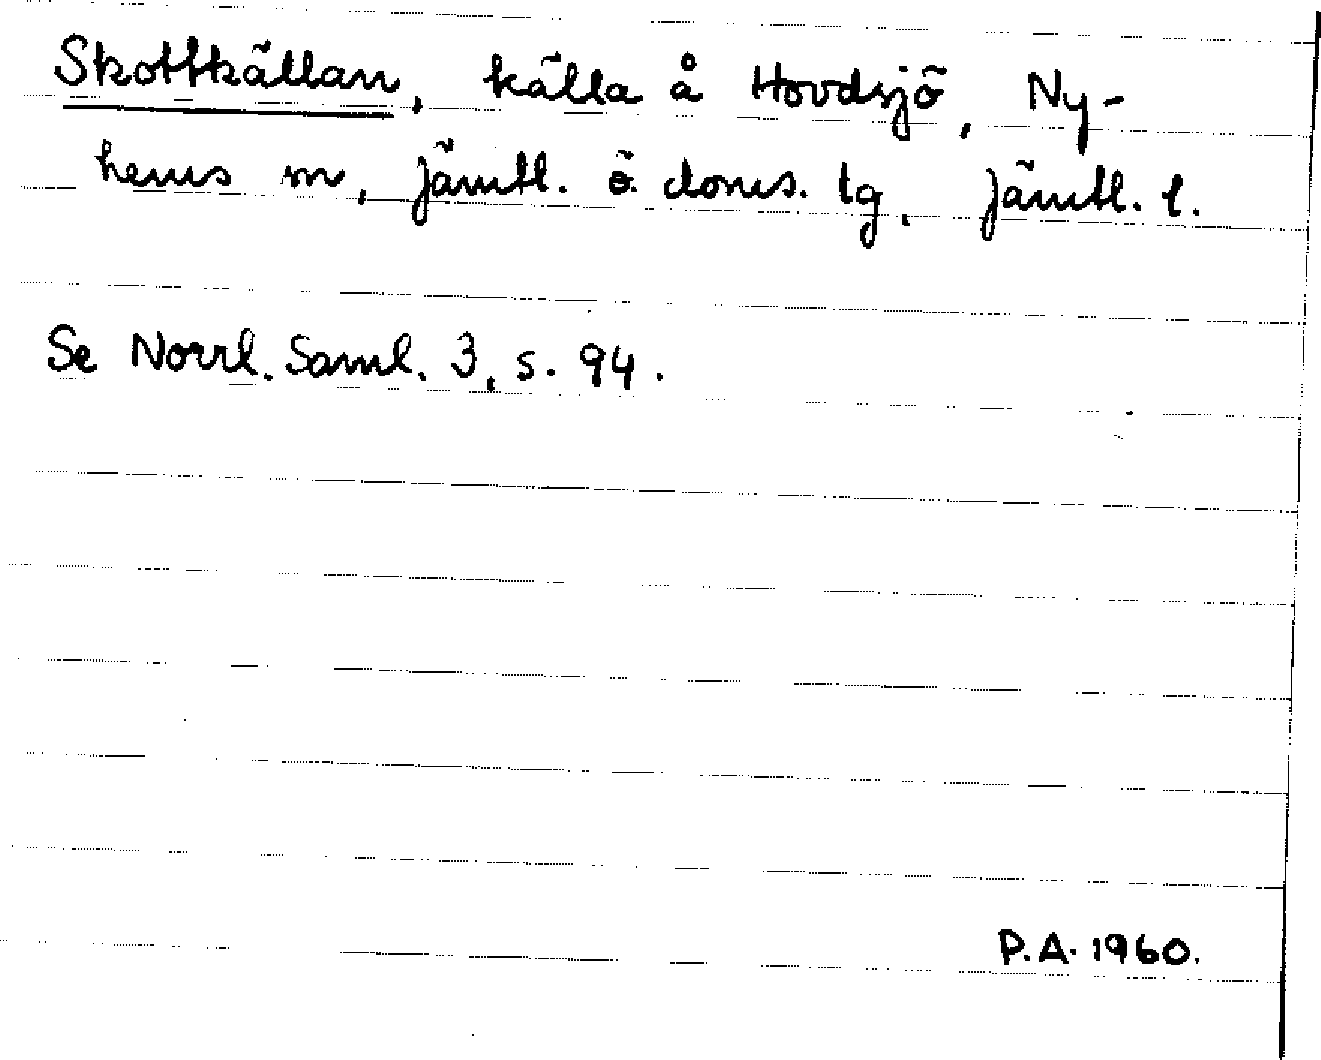 Skottkällan, källa å Hovdsjö, Ny-
hems m, Jämtl. ö. doms. tg. Jämtl. l.
Se Norrl. Saml. 3, s. 94.
P.A. 1960.